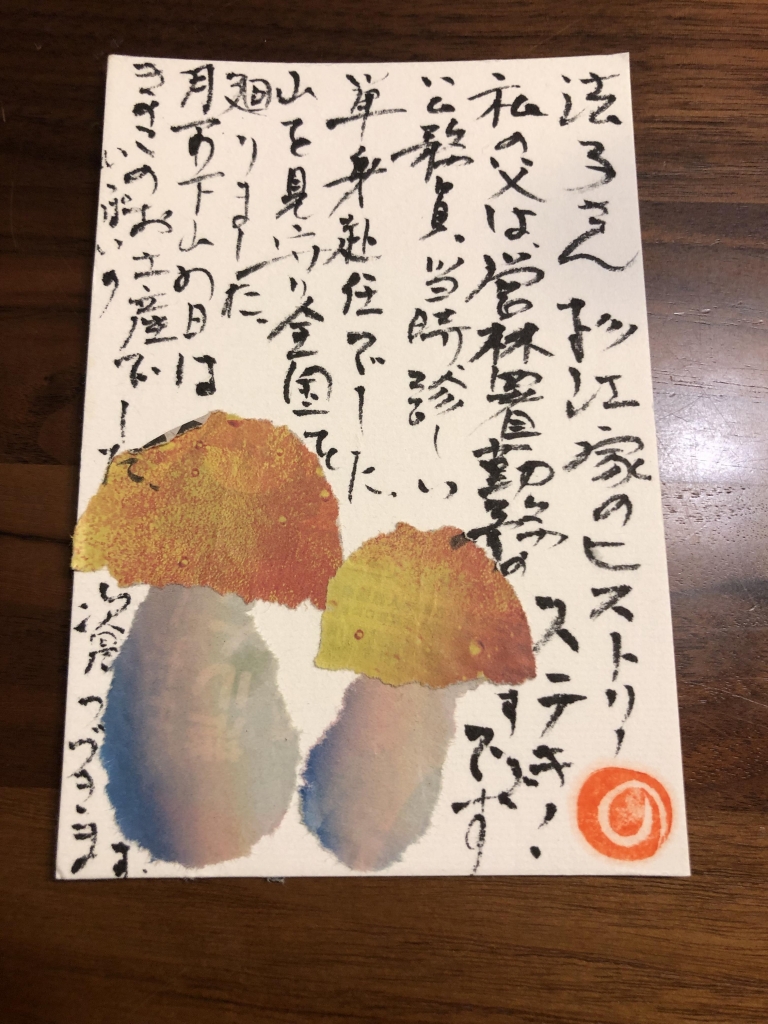 法子さん 松江家のヒストリー
ステキ!
です
私の父は、営林署勤務の
公務員、当時珍しい
単身赴任でした、
山を 全国を
廻りました。
下山の日は
きのこのお土産でした、
つづきます.